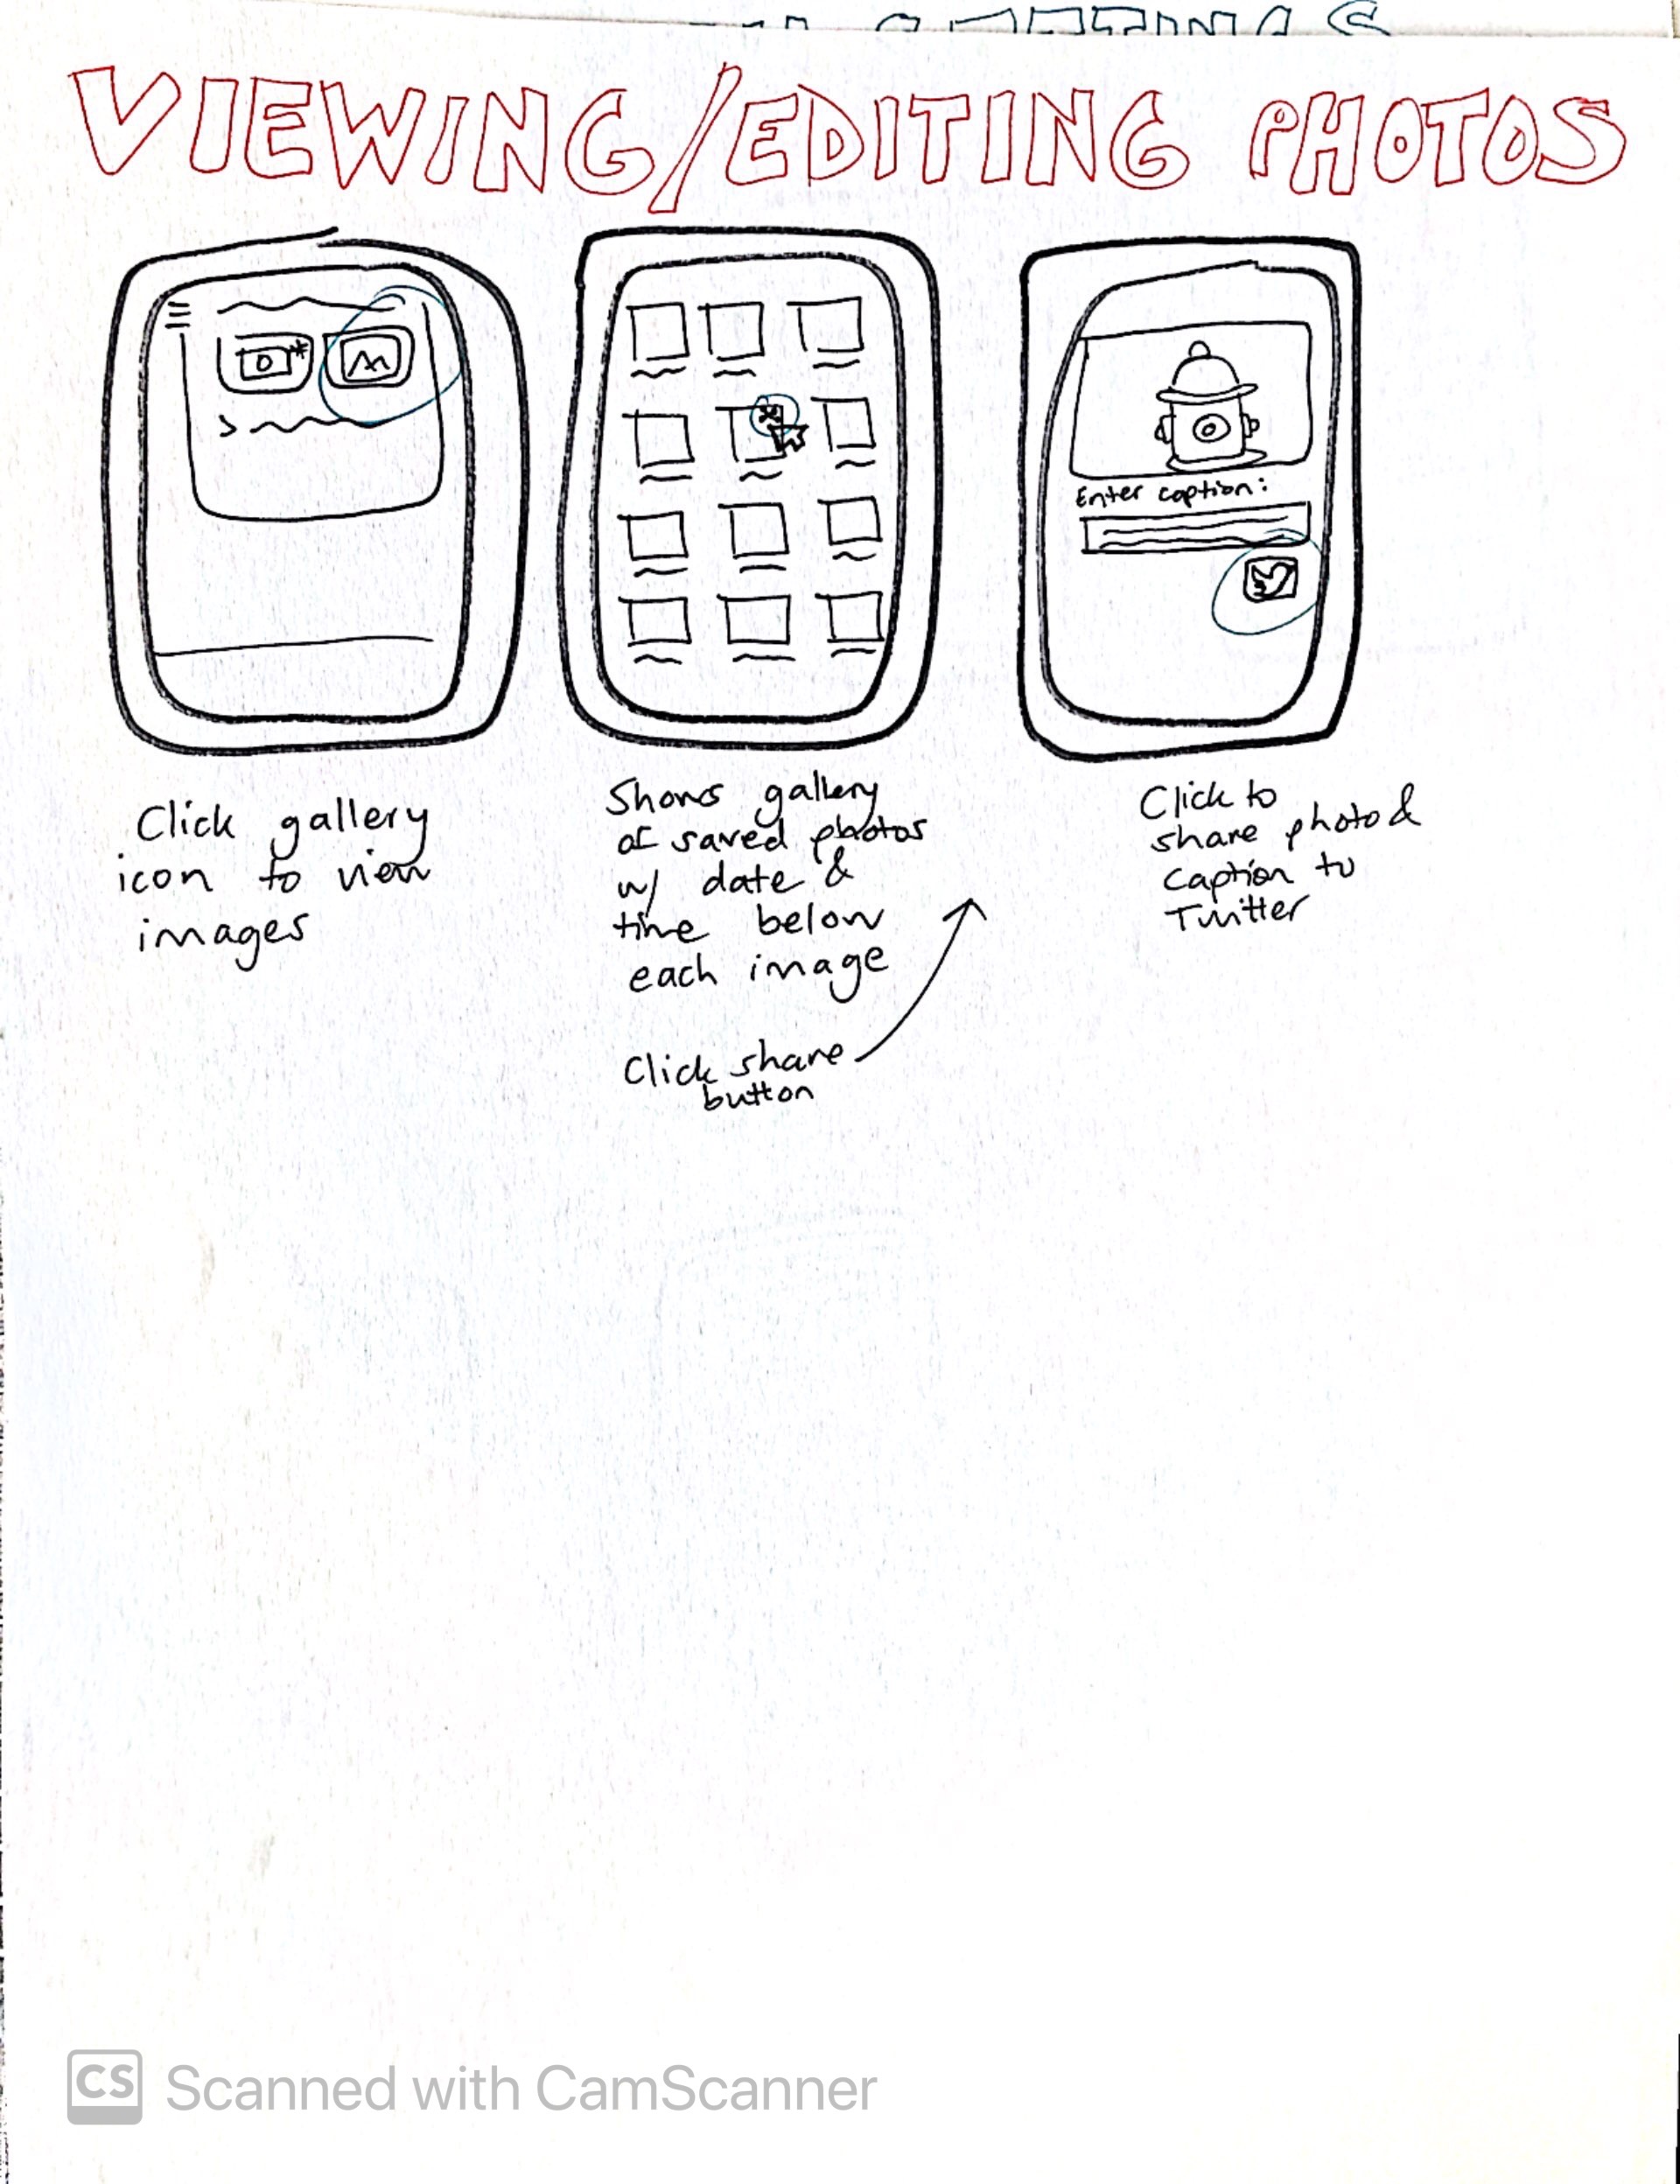 VIEWING/EDITING PHOTOS
Click gallery
icon to view
images
Shows gallery
of saved photos
w/ date &
time below
each image
Click share
button
Enter caption:
Click to
share photo &
caption to
Twitter
CS Scanned with CamScanner